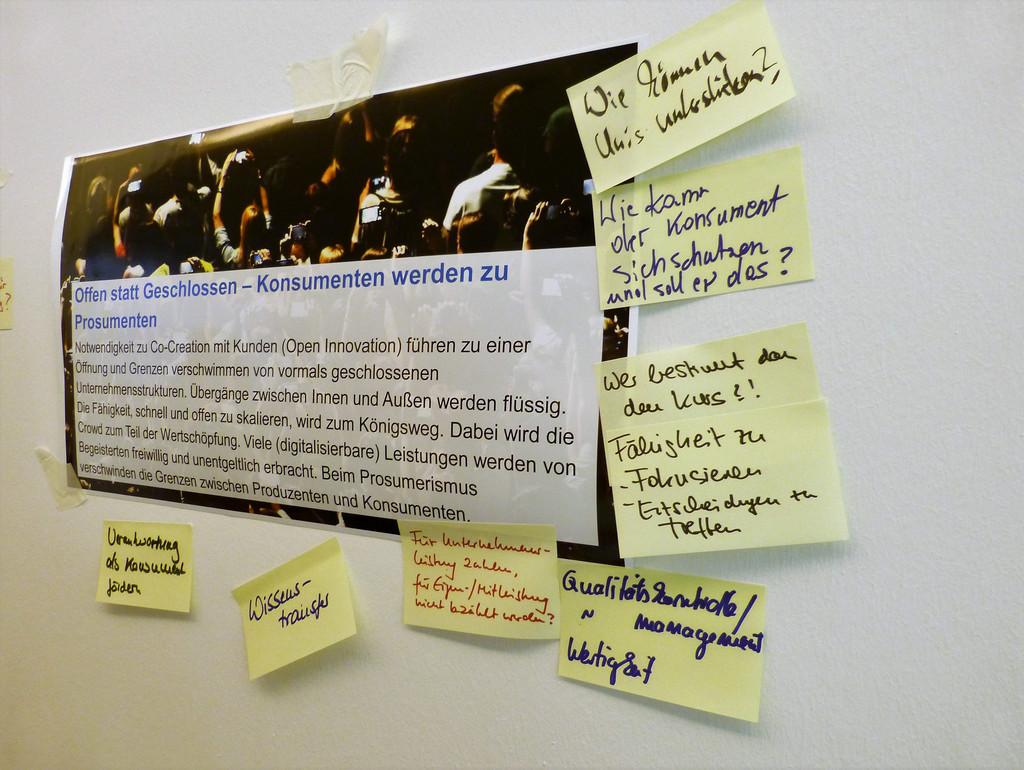 Offen statt Geschlossen – Konsumenten werden zu
Prosumenten
Notwendigkeit zu Co-Creation mit Kunden (Open Innovation) führen zu einer
Öffnung und Grenzen verschwimmen von vormals geschlossenen
Unternehmensstrukturen. Übergänge zwischen Innen und Außen werden flüssig.
Die Fähigkeit, schnell und offen zu skalieren, wird zum Königsweg. Dabei wird die
Crowd zum Teil der Wertschöpfung. Viele (digitalisierbare) Leistungen werden von
Begeisterten freiwillig und unentgeltlich erbracht. Beim Prosumerismus
verschwinden die Grenzen zwischen Produzenten und Konsumenten.
Wie können
Unis unterstützen?
Wie kann
der Konsument
sich schützen
und soll er das?
Wer bestimmt dann
den Kurs?!
Fähigkeit zu
- Fokusieren
- Entscheidungen zu
treffen
Verantwortung
als Konsument
fördern
Wissens-
transfer
Für Unternehmens-
leistung zahlen,
für Eigen-/Mitleistung
nicht bezahlt werden?
Qualitätskontrolle/
~ management
Wertigkeit
?